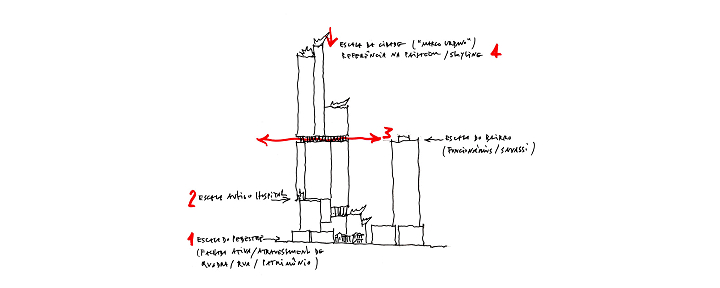 ESCALA DA CIDADE ("MARCO URBANO")
REFERÊNCIA NA PAISAGEM/SKYLINE
4
3
ESCALA DO BAIRRO
(FUNCIONÁRIOS/SAVASSI)
2 ESCALA ANTIGO HOSPITAL
1 ESCALA DO PEDESTRE
(FACHADA ATIVA/ATRAVESSAMENTO DE
QUADRA/RUA/PATRIMÔNIO)